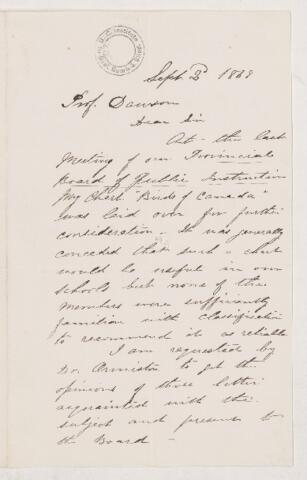 Sept 2d 1869
Prof. Dawson
Dear Sir
At the last
Meeting of our Provincial
Board of Public Instruction
My Chart "Birds of Canada"
was laid over for further
consideration - It was generally
conceded that such a chart
would be useful in our
schools but none of the
members were sufficiently
familiar with classification
to recommend it as reliable
I am requested by
Dr. Ormiston to get the
opinions of those better
acquainted with the
subject and present to
the Board -